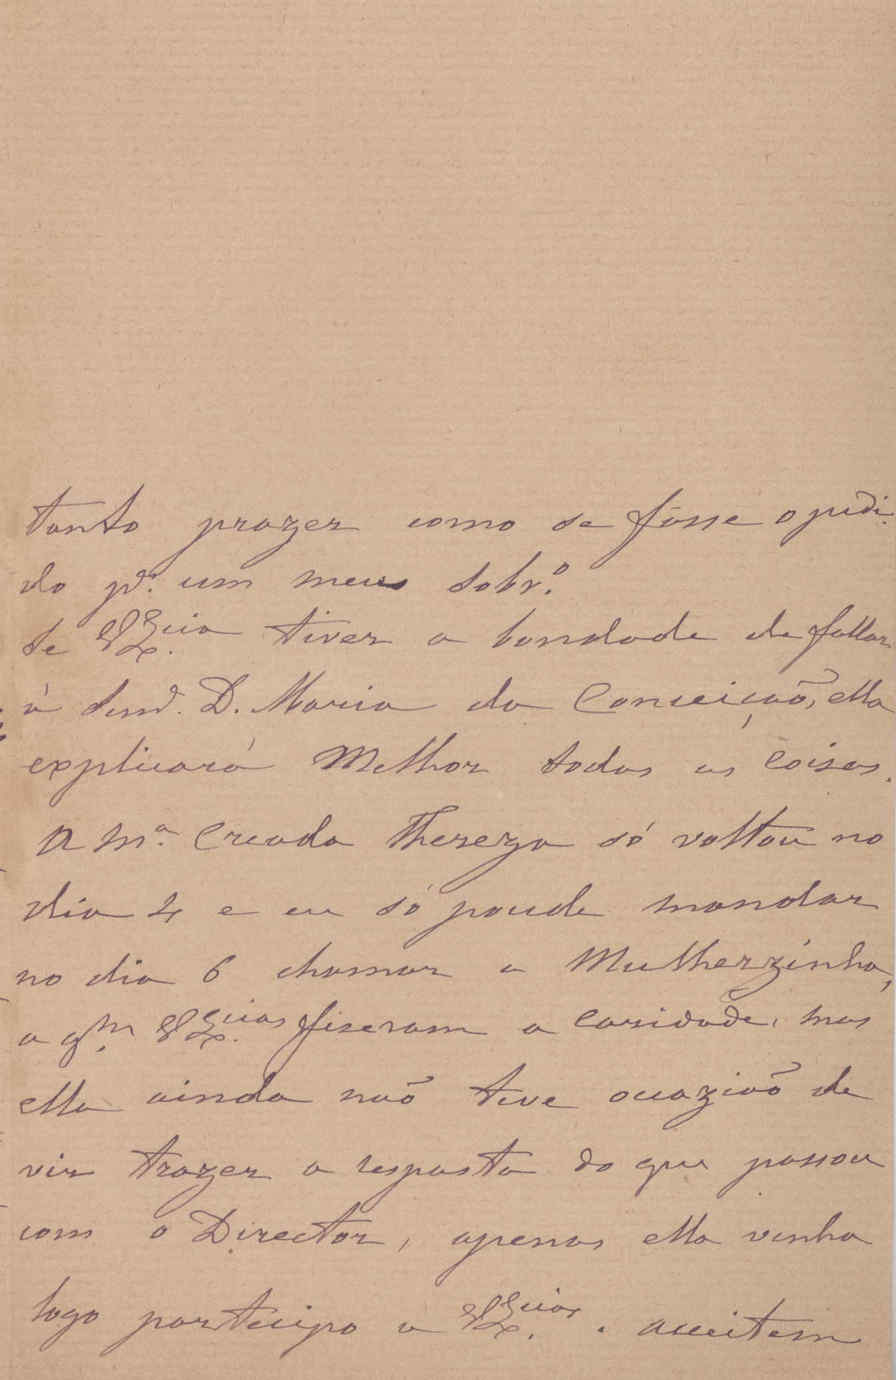 tanto prazer como se fôsse o pedi-
do pª. um meu sobrº.
Se VExcia tiver a bondade de fallar
à Senrª. D. Maria da Conceição, ella
explicará Melhor todas as Coisas.
A mª. Creada Thereza só voltou no
dia 4 e eu só poude mandar
no dia 6 chamar a Mulherzinha,
a qm VExcias fizeram a Caridade, mas
ella ainda não teve ocazião de
vir trazer a resposta do que passou
com o Director, apenas ella venha
logo partecipo a VExcias. acceitem